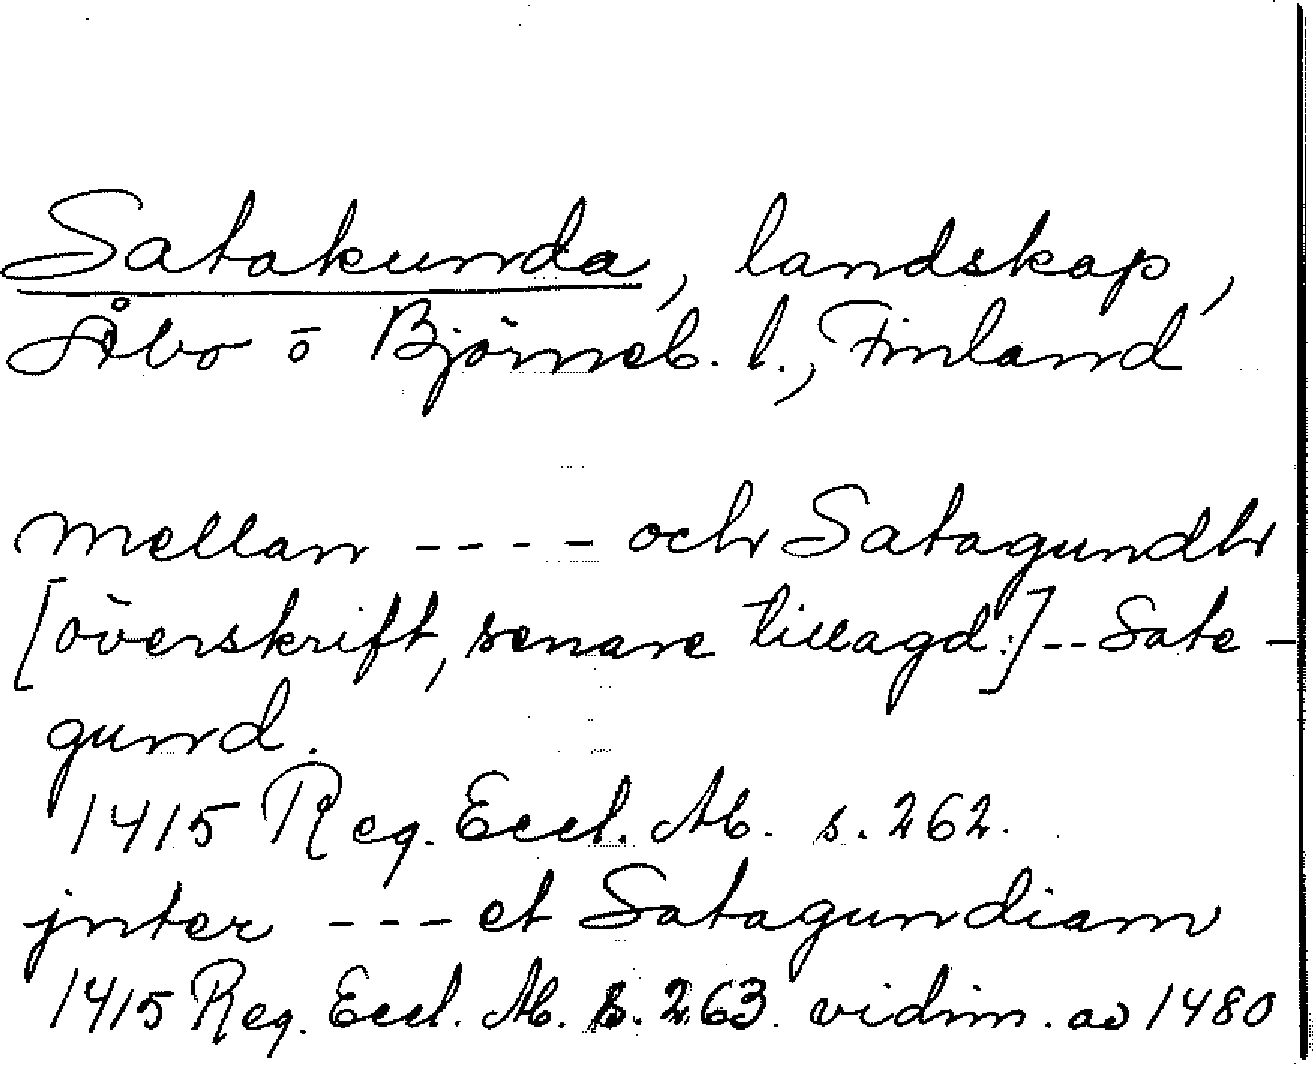 Satakunda, landskap,
Åbo o Björneb. l., Finland
mellan ---- och Satagundh
[överskrift, senare tillagd.] -- Sate-
gund.
1415 Reg. Eccl. Ab. s. 262.
jnter --- et Satagundiam
1415 Reg. Eccl. Ab. s. 263. vidim. av 1480